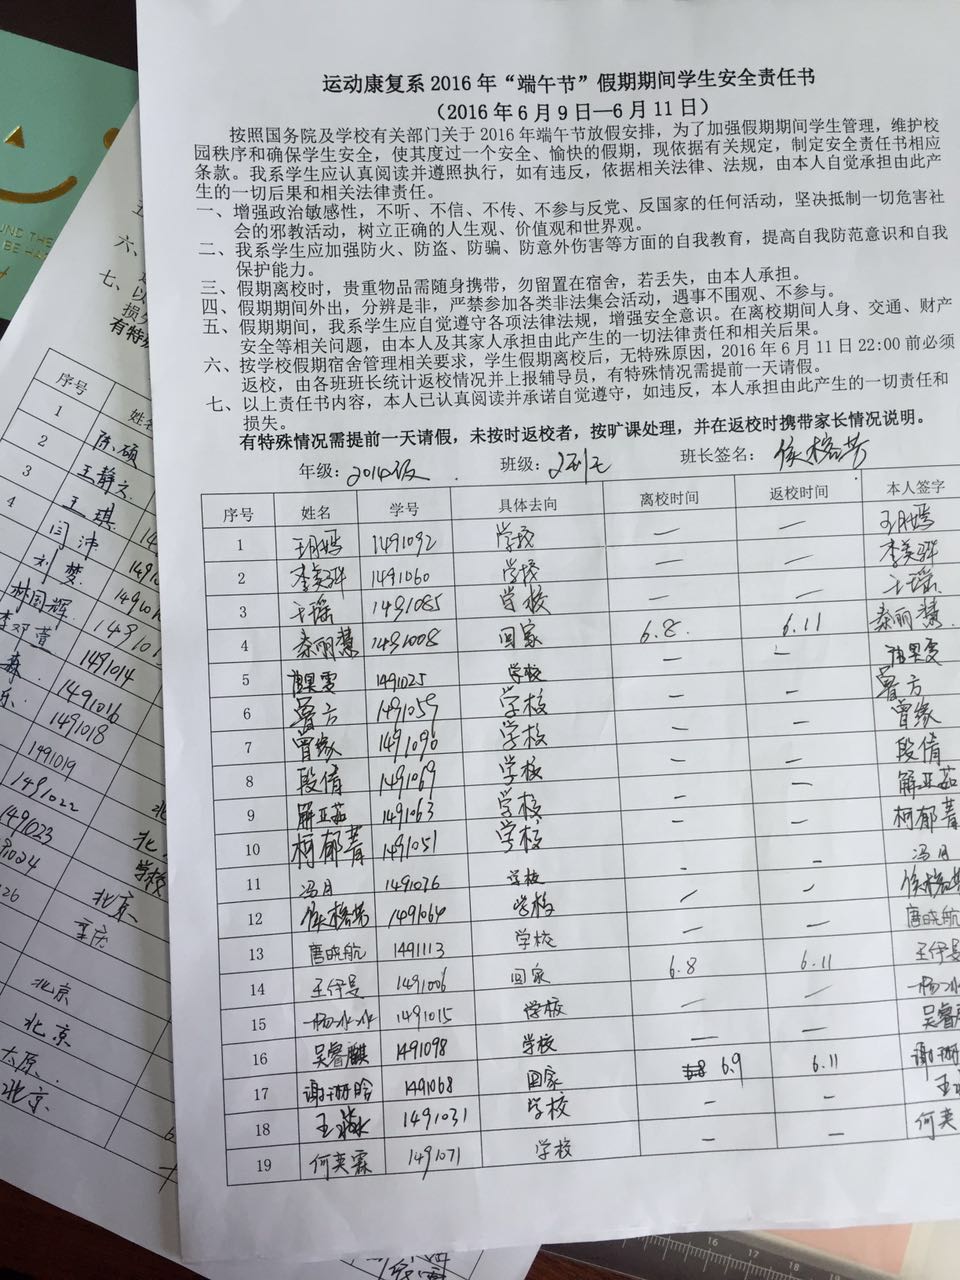 运动康复系2016年“端午节”假期期间学生安全责任书
（2016年6月9日—6月11日）
按照国务院及学校有关部门关于2016年端午节放假安排，为了加强假期期间学生管理，维护校
园秩序和确保学生安全，使其度过一个安全、愉快的假期，现依据有关规定，制定安全责任书相应
条款。我系学生应认真阅读并遵照执行，如有违反，依据相关法律、法规，由本人自觉承担由此产
生的一切后果和相关法律责任。
一、增强政治敏感性，不听、不信、不传、不参与反党、反国家的任何活动，坚决抵制一切危害社
会的邪教活动，树立正确的人生观、价值观和世界观。
二、我系学生应加强防火、防盗、防骗、防意外伤害等方面的自我教育，提高自我防范意识和自我
保护能力。
三、假期离校时，贵重物品需随身携带，勿留置在宿舍，若丢失，由本人承担。
四、假期期间外出，分辨是非，严禁参加各类非法集会活动，遇事不围观、不参与。
五、假期期间，我系学生应自觉遵守各项法律法规，增强安全意识。在离校期间人身、交通、财产
安全等相关问题，由本人及其家人承担由此产生的一切法律责任和相关后果。
六、按学校假期宿舍管理相关要求，学生假期离校后，无特殊原因，2016年6月11日22:00前必须
返校，由各班班长统计返校情况并上报辅导员，有特殊情况需提前一天请假。
七、以上责任书内容，本人已认真阅读并承诺自觉遵守，如违反，本人承担由此产生的一切责任和
损失。
有特殊情况需提前一天请假，未按时返校者，按旷课处理，并在返校时携带家长情况说明。
年级：2014级 班级： 班长签名：侯榕芳
序号 姓名 学号 具体去向 离校时间 返校时间 本人签字
1 1491092 学校 — —
2 李美骅 1491060 学校 — — 李美骅
3 王瑶 1491085 学校 — — 王瑶
4 秦丽慧 1491008 回家 6.8. 6.11 秦丽慧.
5 1491025 学校 — —
6 曾方 1491059 学校 — — 曾方
7 曾缘 1491096 学校 — — 曾缘
8 段倩 1491069 学校 — — 段倩
9 解亚茹 1491063 学校 — — 解亚茹
10 柯郁菁 1491051 学校 — — 柯郁菁
11 冯月 1491076 学校 — — 冯月
12 侯榕芳 1491064 学校 — — 侯榕芳
13 唐晓航 1491113 学校 唐晓航
14 王伊旻 1491006 回家 6.8 6.11 王伊旻
15 杨冰冰 1491015 学校 — — 杨冰
16 吴睿麒 1491098 学校 — — 吴睿麒
17 谢珊晗 1491068 回家 6.9 6.11 谢珊
18 1491031 学校 — —
19 何奕霖 1491071 学校 — — 何奕
六、
七、以
损
有特殊
序号 姓名
1 陈硕
2 王静文
3 王琪
4 闫沛
刘梦
林国辉
李邓萱 1491014
森 1491016
1491018
1491019
1491022
1491023
1491024 学校
北京
北京
北京
太原
北京
16 17 18